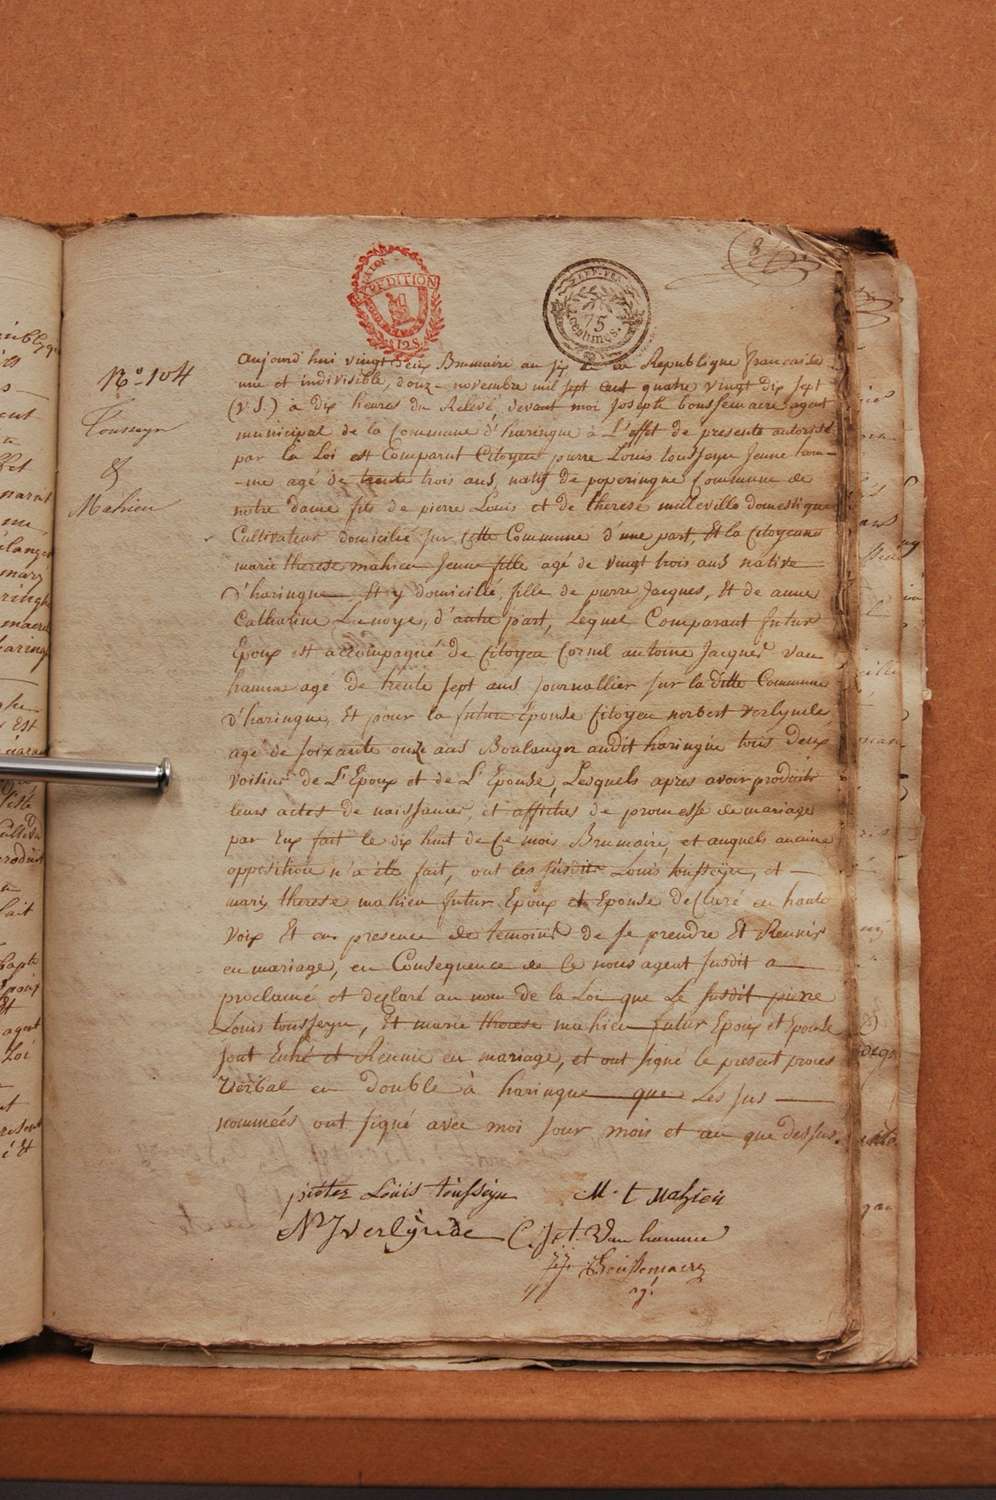 N.º 104
Tousseyn
&
Mahieu
EXPEDITION
125
REP. FRA.
75
centimes.
aujourd'hui vingt deux Brumaire an six de la Republique francaise
une et indivisible, douz- novembre mil sept cent quatre vingt dix sept
(V.S.) à dix heures du Relevé, devant moi Joseph boussemaere agent
municipal de la Commune d'haringue à L'effet de presente autorisé
par la Loi est Comparut Citoyen pierre Louis tousseyn jeune hom-
-me agé de trente trois ans, natif de poperingue Commune de
notre dame fils de pierre Louis et de therese milleville domestique
Cultivateur domicilié sur cette Commune d'une part, Et la Citoyenne
marie therese mahieu Jeune fille agé de vingt trois ans native
d'haringue Et y domicilié, fille de pierre Jacques, Et de anne
Catharine Lenoye, d'autre part, Lequel Comparant futur
Epoux est accompagné de Citoyen Cornil antoine Jacques van
hamme agé de trente sept ans journallier sur la ditte Commune
d'haringue, Et pour la future Epouse Citoyen norbert verlynde
agé de soixante onze ans Boulanger audit haringue tous deux
voisins de L'Epoux et de L'Epouse, Lesquels apres avoir produit
leurs actes de naissances, et affiches de promesse de mariage
par Eux fait le dix huit de Ce mois Brumaire, et auquels aucune
opposition n'a été fait, ont les susdits Louis tousseyn, et
marie therese mahieu futur Epoux et Epouse declaré en haute
voix Et en presence de temoins de se prendre Et Reunir
en mariage, en Consequence de Ce nous agent susdit a
proclamé et declaré au nom de la Loi que Le susdit pierre
Louis tousseyn, Et marie therese mahieu futur Epoux et Epouse
sont Enhé et Reunie en mariage, et ont signé le present proces
verbal en double à haringue que Les sus
nommées ont signé avec moi jour mois et an que dessus.
pieter Louis tousseyn
M. t Mahieu
N J verlynde
C. J et. Van hamme
J: J: Boussemaere
ag.t